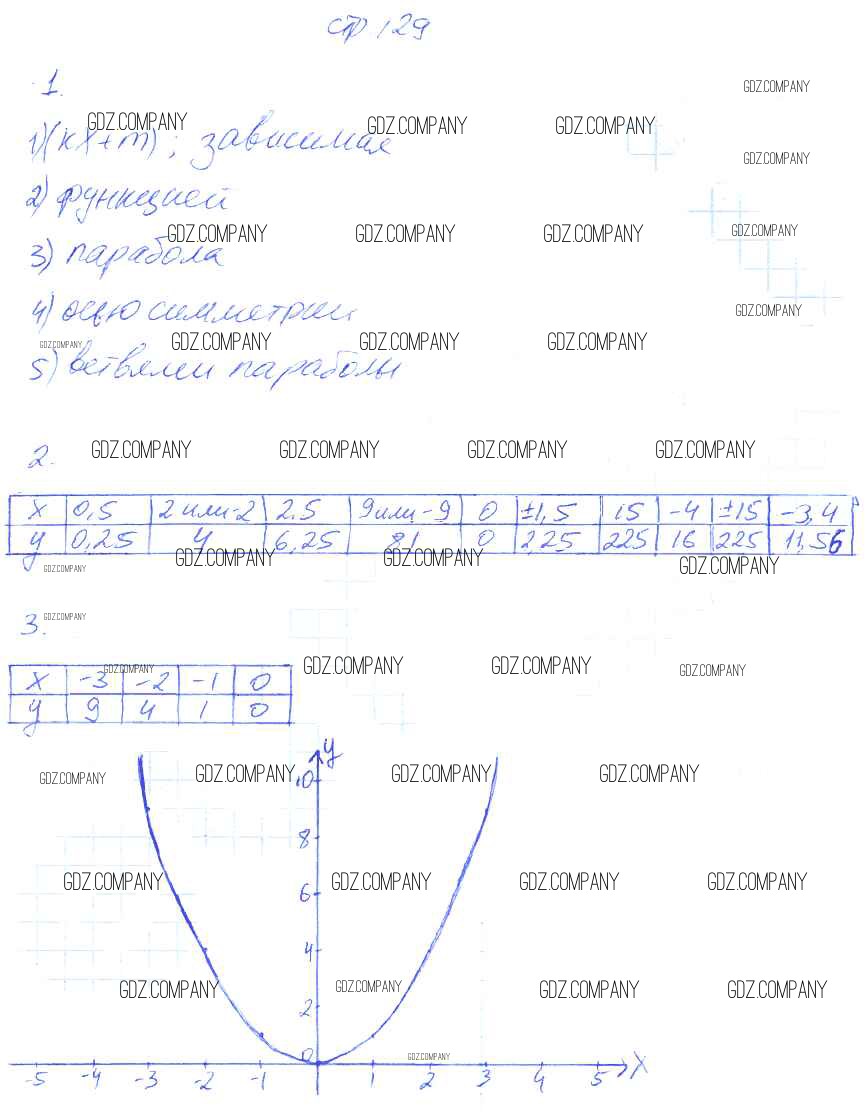 стр 129
1.
GDZ.COMPANY
GDZ.COMPANY GDZ.COMPANY GDZ.COMPANY
1) (kx+m); зависимая
GDZ.COMPANY
2) функцией
GDZ.COMPANY GDZ.COMPANY GDZ.COMPANY GDZ.COMPANY
3) парабола
4) осью симметрии
GDZ.COMPANY
GDZ.COMPANY GDZ.COMPANY GDZ.COMPANY GDZ.COMPANY
5) ветвями параболы
2. GDZ.COMPANY GDZ.COMPANY GDZ.COMPANY GDZ.COMPANY
x 0,5 2 или -2 2.5 9 или -9 0 ±1,5 15 -4 ±15 -3,4
y 0,25 4 6,25 81 0 2,25 225 16 225 11,56
GDZ.COMPANY GDZ.COMPANY GDZ.COMPANY GDZ.COMPANY
3. GDZ.COMPANY
GDZ.COMPANY GDZ.COMPANY GDZ.COMPANY GDZ.COMPANY
x -3 -2 -1 0
y 9 4 1 0
y
GDZ.COMPANY GDZ.COMPANY GDZ.COMPANY GDZ.COMPANY
10
8
GDZ.COMPANY GDZ.COMPANY GDZ.COMPANY GDZ.COMPANY
6
4
GDZ.COMPANY GDZ.COMPANY GDZ.COMPANY GDZ.COMPANY
2
0 GDZ.COMPANY
x
-5 -4 -3 -2 -1 1 2 3 4 5